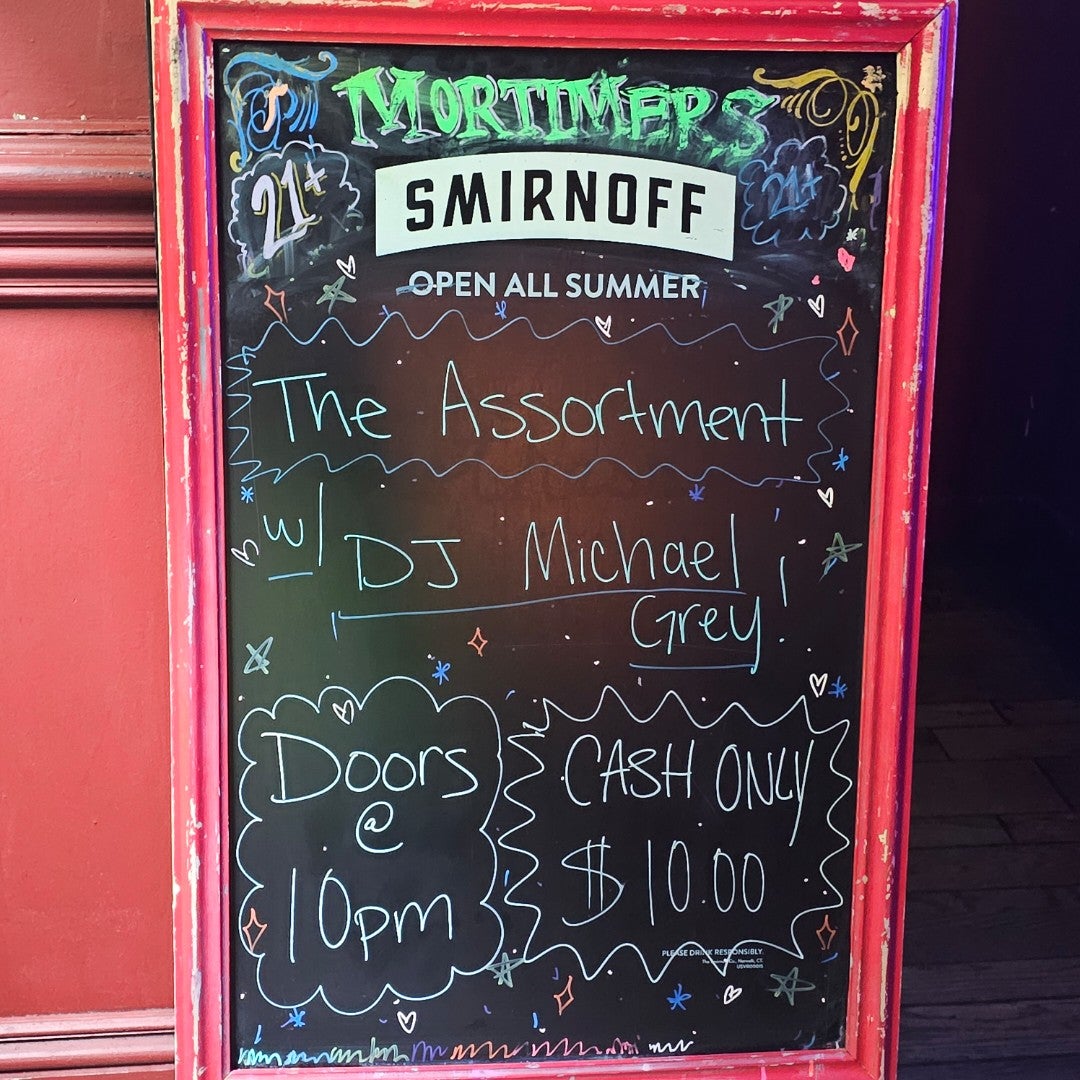 MORTIMERS
21+
SMIRNOFF
21+
OPEN ALL SUMMER
The Assortment
w/ DJ Michael
Grey!
Doors
@
10pm
CASH ONLY
$10.00
PLEASE DRINK RESPONSIBLY.
The Smirnoff Co., Norwalk, CT.